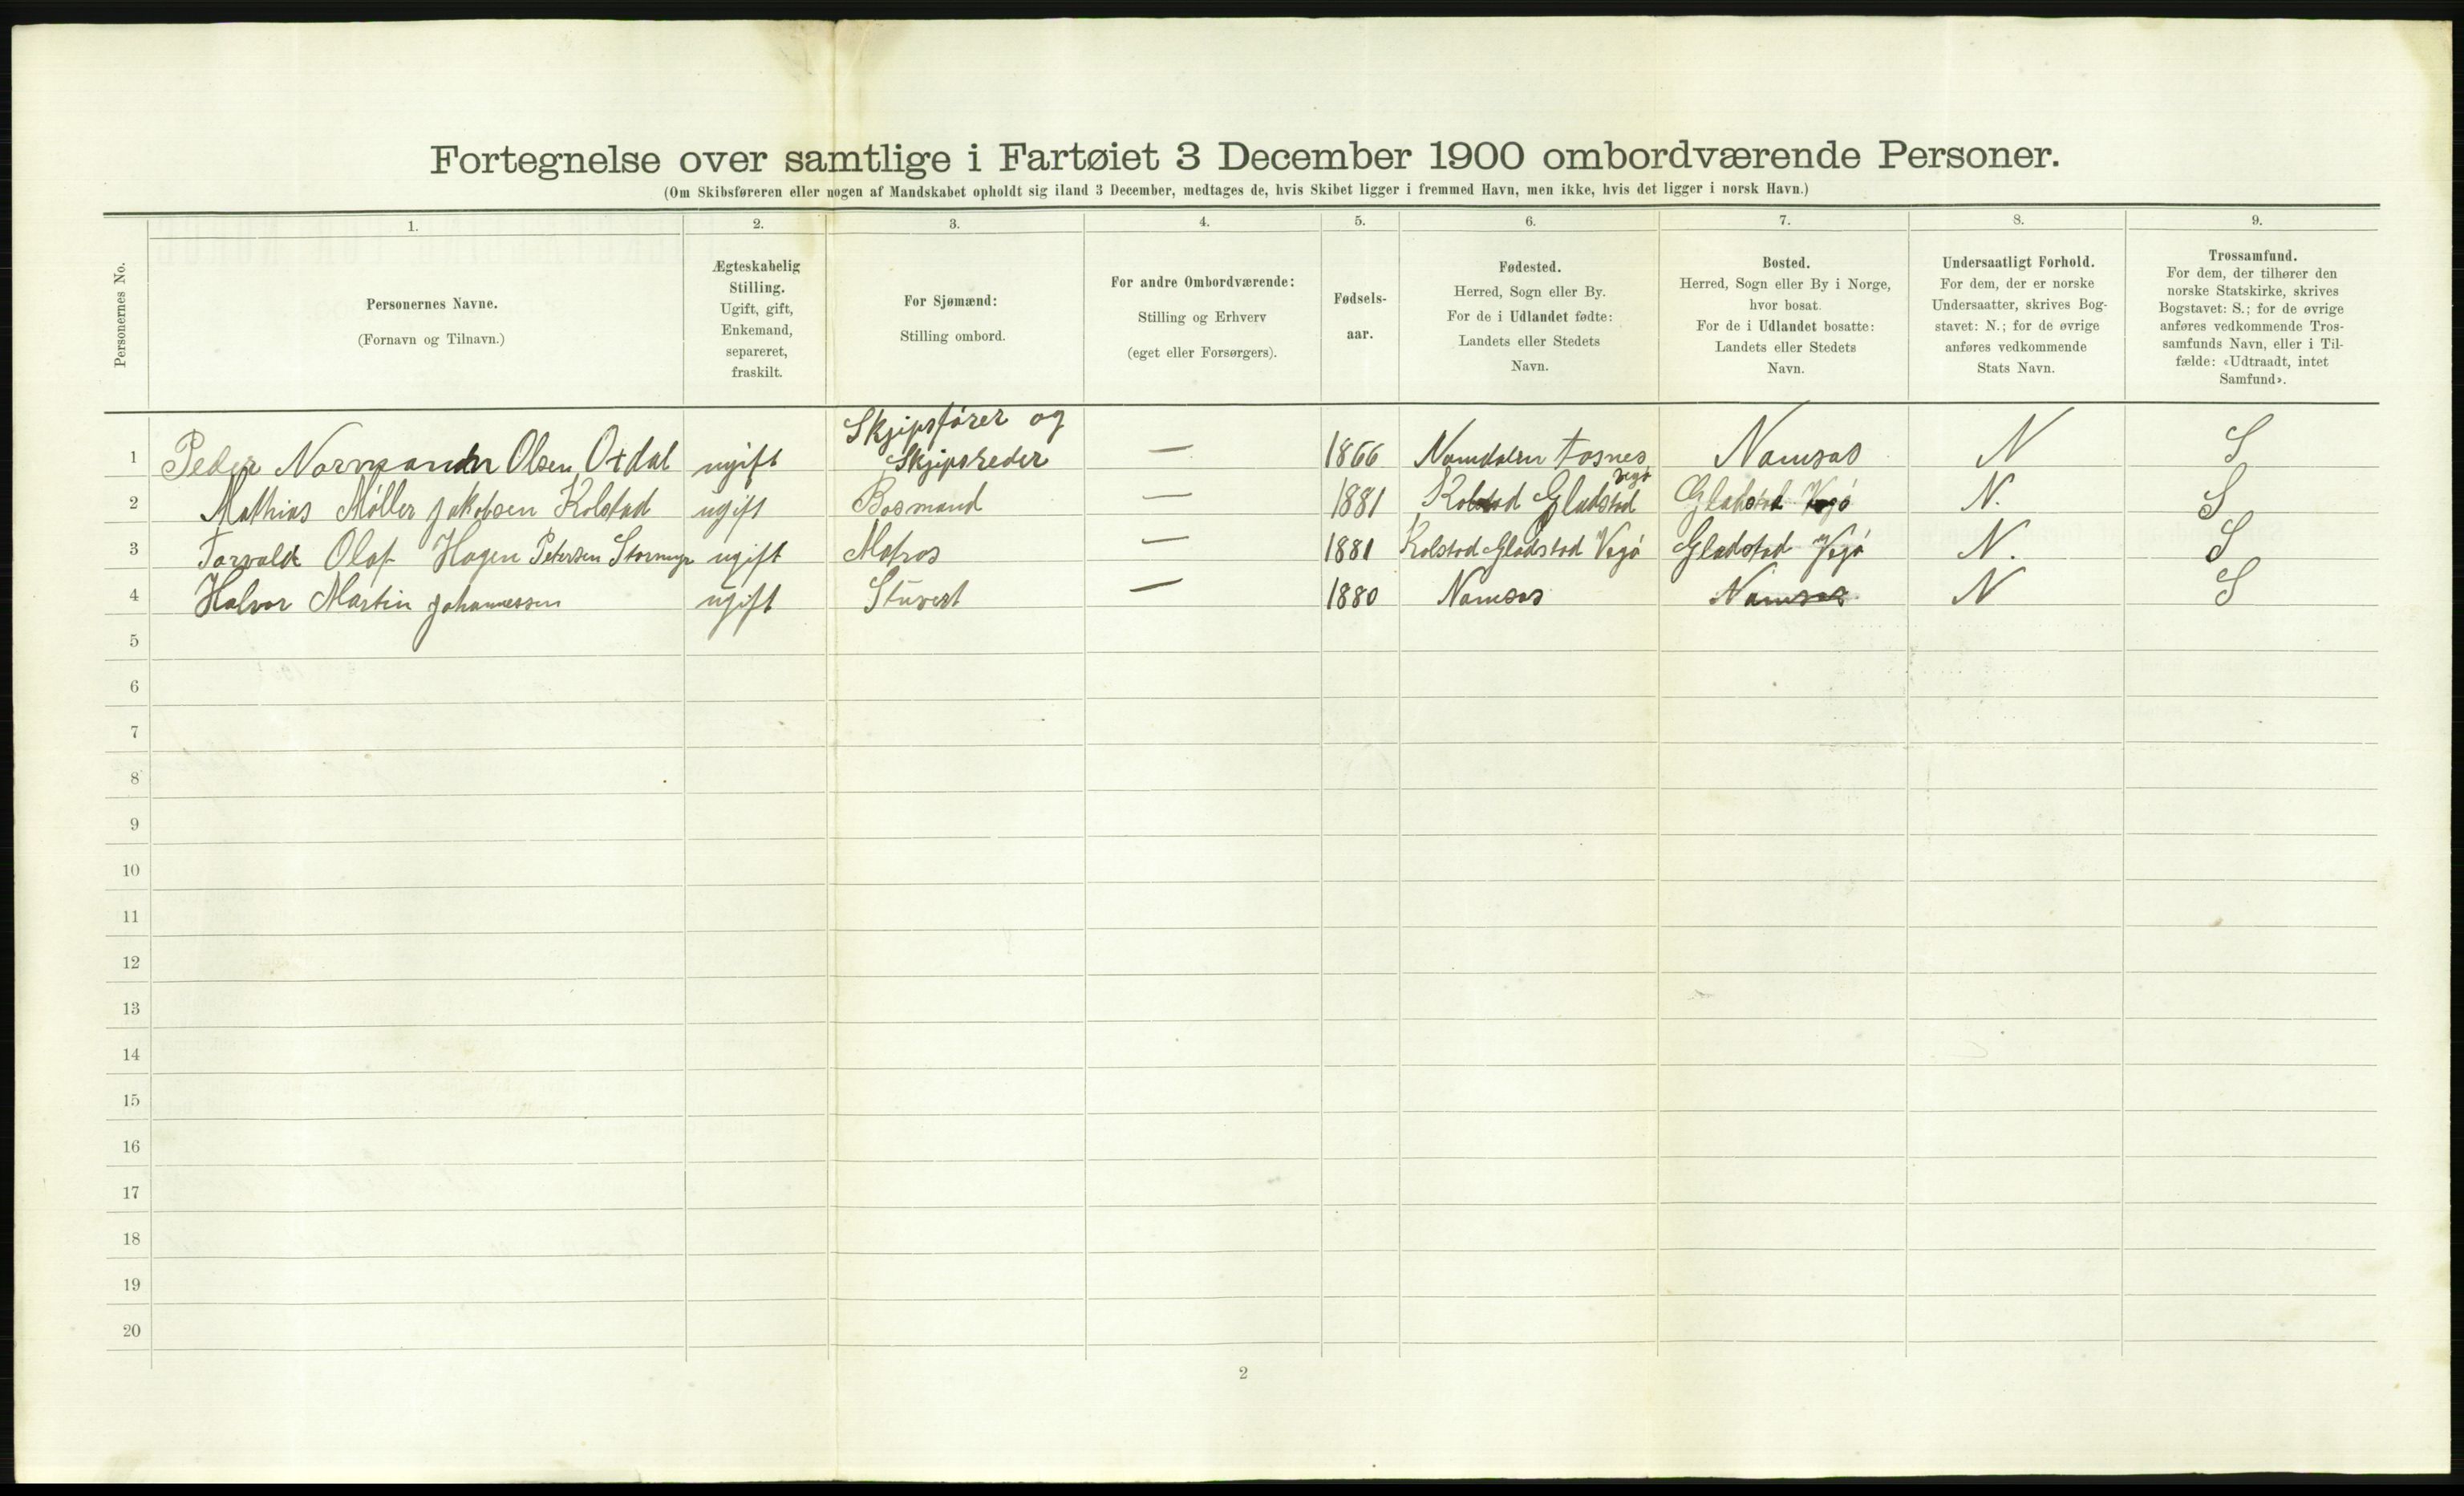 Fortegnelse over samtlige i Fartøiet 3 December 1900 ombordværende Personer.
(Om Skibsføreren eller nogen af Mandskabet opholdt sig iland 3 December, medtages de, hvis Skibet ligger i fremmed Havn, men ikke, hvis det ligger i norsk Havn.)
Personernes No.
1.
Personernes Navne.
(Fornavn og Tilnavn.)
2.
Ægteskabelig
Stilling.
Ugift, gift,
Enkemand,
separeret,
fraskilt.
3.
For Sjømænd:
Stilling ombord.
4.
For andre Ombordværende:
Stilling og Erhverv
(eget eller Forsørgers).
5.
Fødsels-
aar.
6.
Fødested.
Herred, Sogn eller By.
For de i Udlandet fødte:
Landets eller Stedets
Navn.
7.
Bosted.
Herred, Sogn eller By i Norge,
hvor bosat.
For de i Udlandet bosatte:
Landets eller Stedets
Navn.
8.
Undersaatligt Forhold.
For dem, der er norske
Undersaatter, skrives Bog-
stavet: N.; for de øvrige
anføres vedkommende
Stats Navn.
9.
Trossamfund.
For dem, der tilhører den
norske Statskirke, skrives
Bogstavet: S.; for de øvrige
anføres vedkommende Tros-
samfunds Navn, eller i Til-
fælde: «Udtraadt, intet
Samfund».
Skjipsfører og
1 Peder Olsen Oxdal ugift Skjipsreder — 1866 Namdalen Fosnes Namsos N S
Vegø
2 Mathias Møller Jakobsen Kolstad ugift Bosmand — 1881 Kolstad Gladstad Gladstad Vegø N. S
3 Torvald Olaf Hagen Petersen Stormyr ugift Matros — 1881 Kolstad Gladstad Vegø Gladstad Vegø N. S
4 Halvor Martin Johannessen ugift Stuvert — 1880 Namsos Namsos N S
5
6
7
8
9
10
11
12
13
14
15
16
17
18
19
20
2